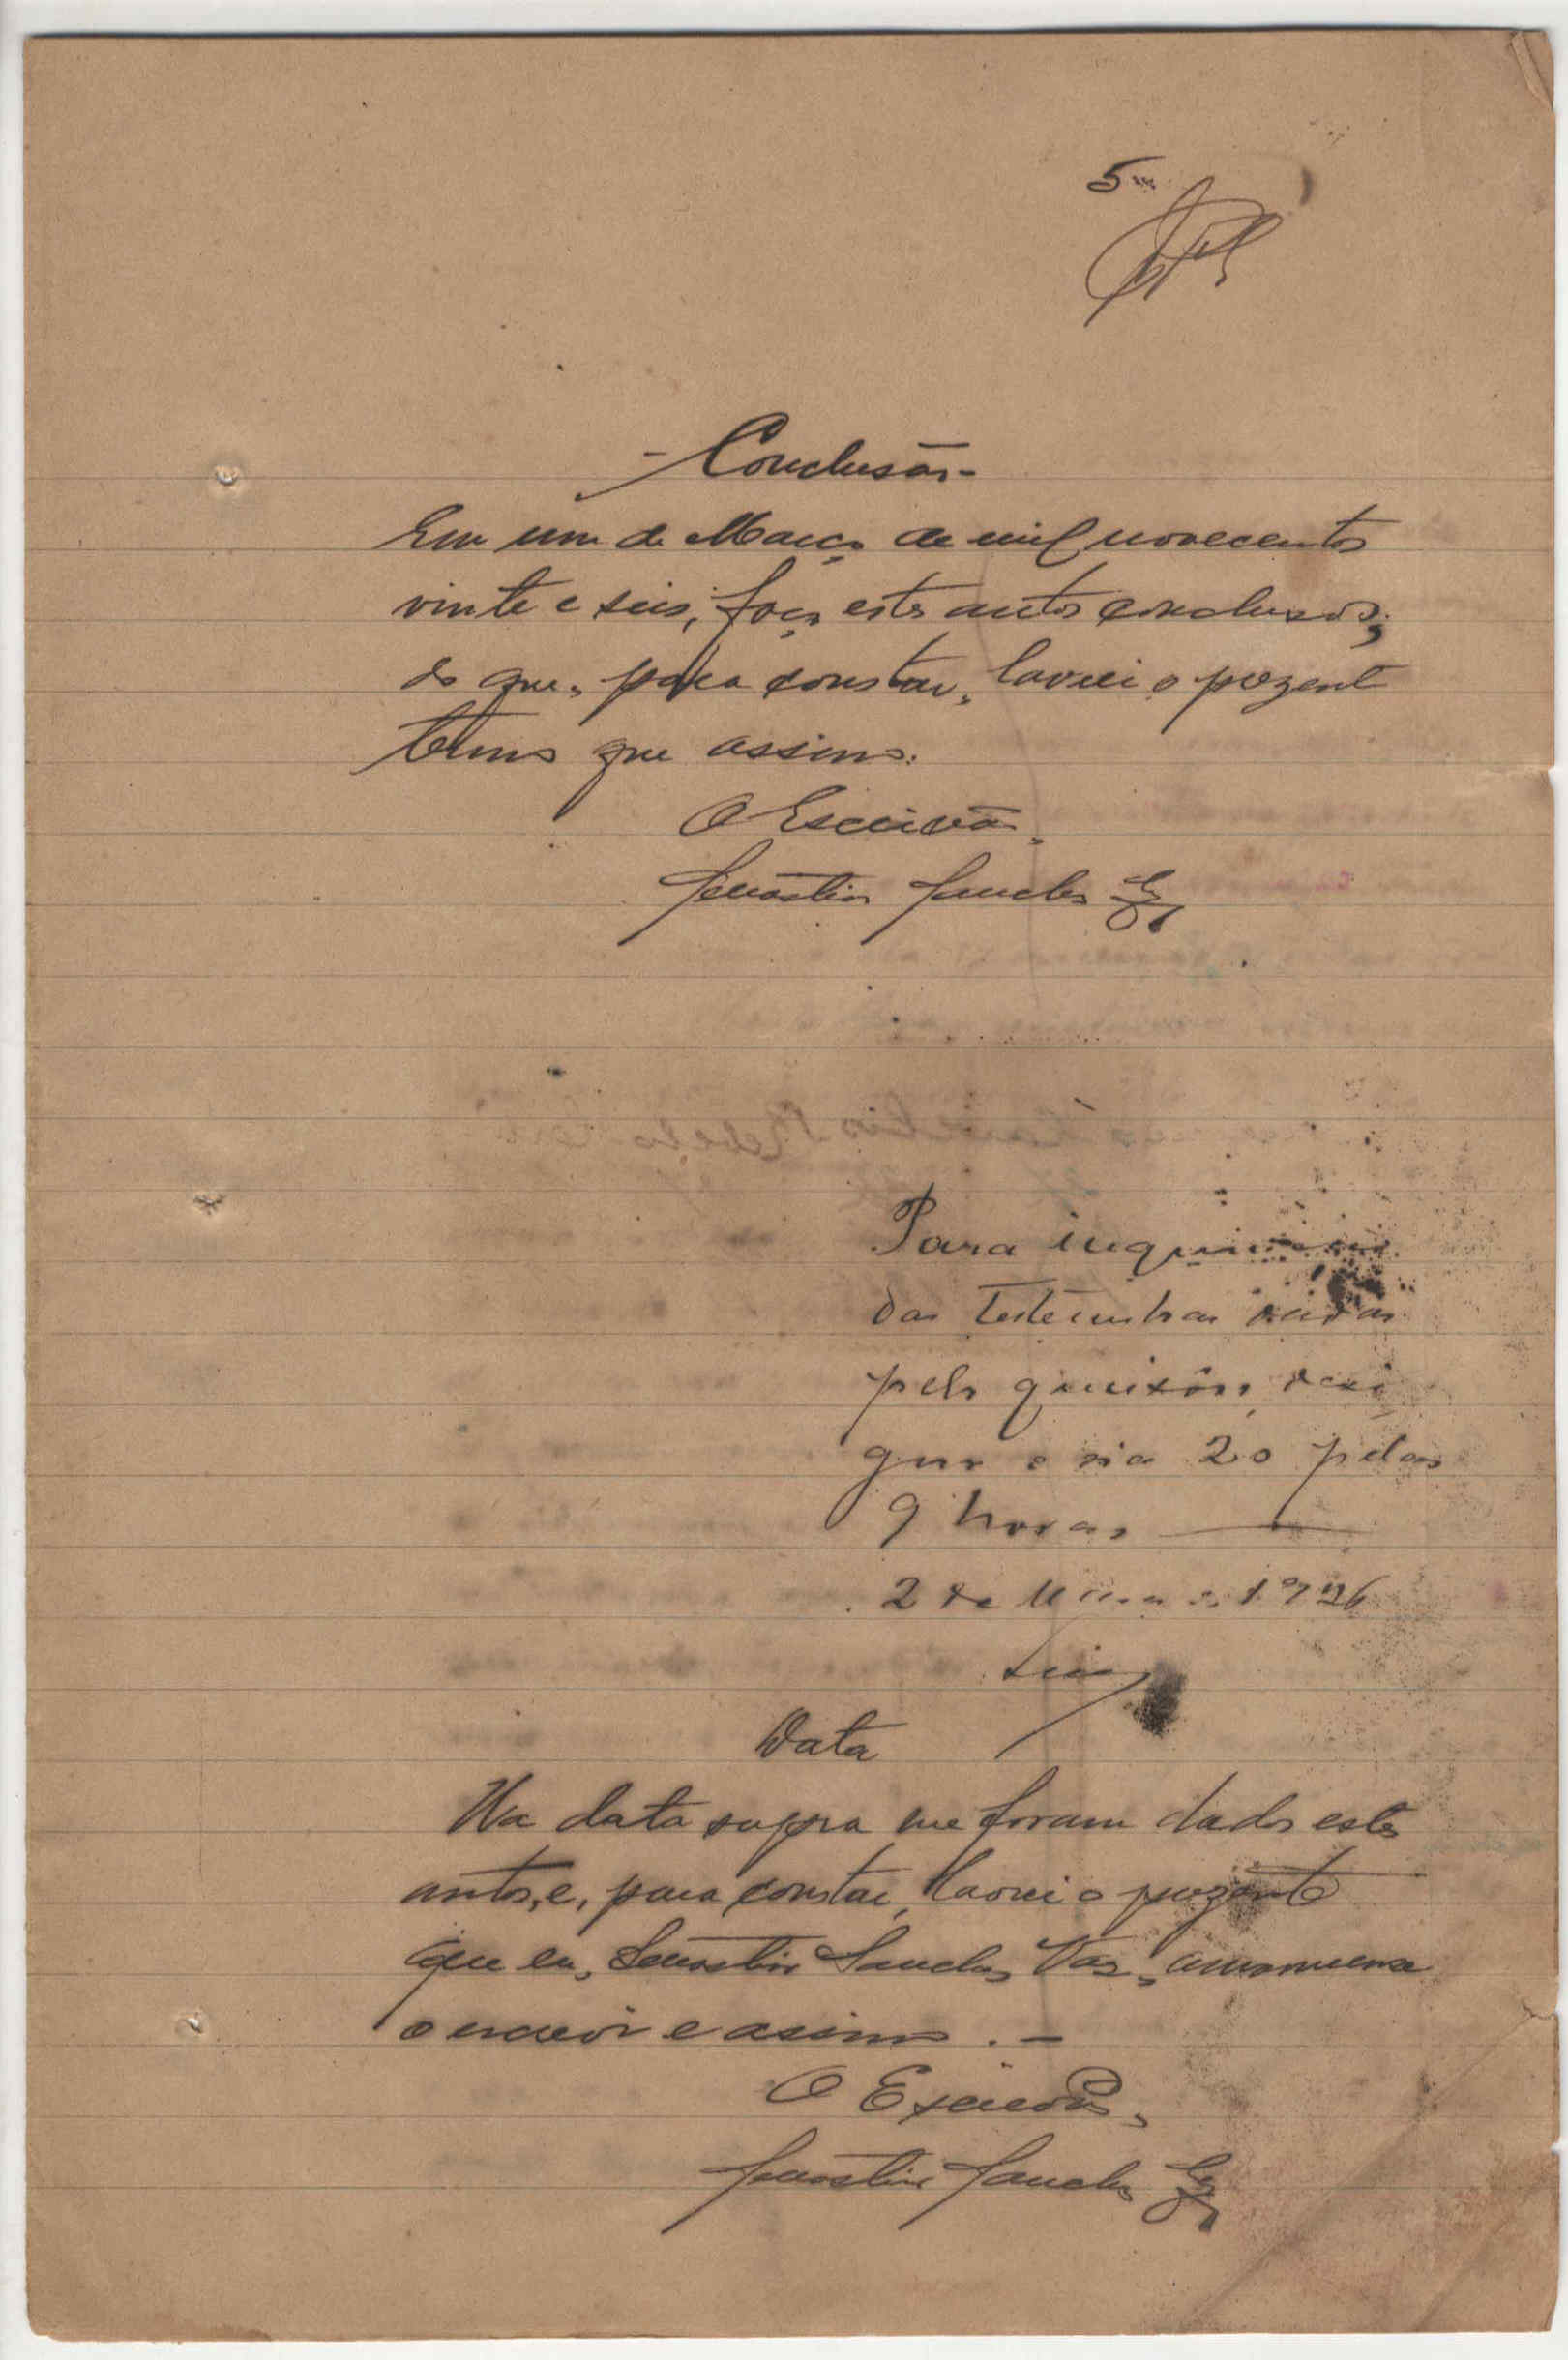 5
- Conclusão -
Em um de Março de mil novecentos
vinte e seis, faço estes autos conclusos;
do que, para constar, lavrei o prezente
termo que assino.
O Escrivão,
Sebastião Sanches
Para inquirição
das testemunhas
pelo queixoso, desi
gno o dia 20 pelas
9 horas
2 de Março 1926
Data
Na data supra me foram dados estes
autos, e, para constar, lavrei o prezente
que eu, Sebastião Sanches Vaz, amanuense
o escrevi e assino. -
O Escrivão,
Sebastião Sanches